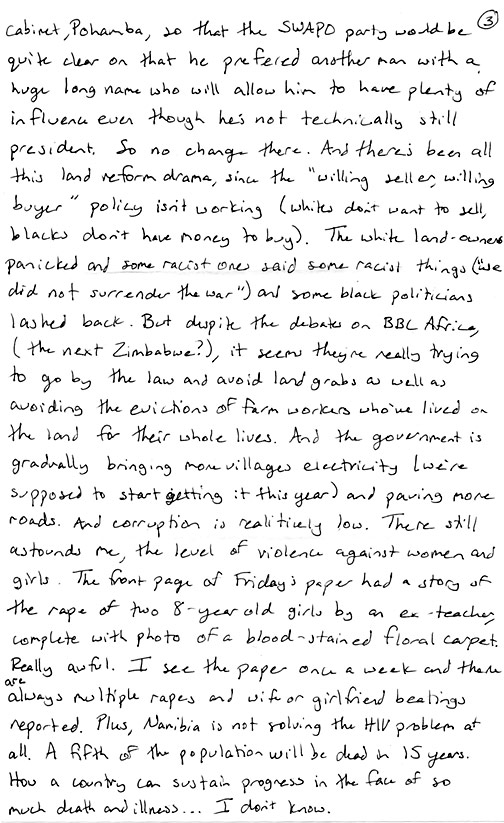 ③
cabinet, Pohamba, so that the SWAPO party would be
quite clear on that he prefered another man with a
huge long name who will allow him to have plenty of
influence even though he's not technically still
president. So no change there. And there's been all
this land reform drama, since the "willing seller, willing
buyer" policy isn't working (whites don't want to sell,
blacks don't have money to buy). The white land-owners
panicked and some racist ones said some racist things ("we
did not surrender the war") and some black politicians
lashed back. But despite the debates on BBC Africa,
(the next Zimbabwe?), it seems they're really trying
to go by the law and avoid land grabs as well as
avoiding the evictions of farm workers who've lived on
the land for their whole lives. And the government is
gradually bringing more villages electricity (we're
supposed to start getting it this year) and paving more
roads. And corruption is realitively low. There still
astounds me, the level of violence against women and
girls. The front page of Friday's paper had a story of
the rape of two 8-year old girls by an ex-teacher,
complete with photo of a blood-stained floral carpet.
Really awful. I see the paper once a week and there
are
always multiple rapes and wife or girlfriend beatings
reported. Plus, Namibia is not solving the HIV problem at
all. A fifth of the population will be dead in 15 years.
How a country can sustain progress in the face of so
much death and illness... I don't know.